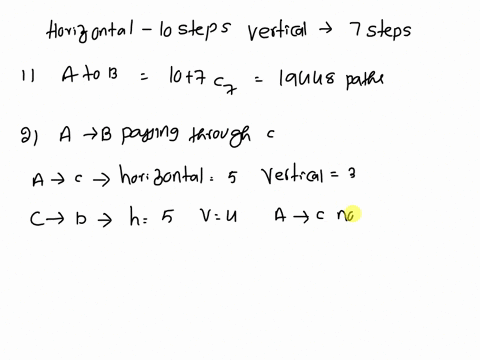 Horizontal - 10 steps vertical → 7 steps
1) A to B = 10+7 C7 = 19448 paths
2) A → B passing through c
A → c → horizontal = 5 vertical = 3
C → b → h = 5 V = 4 A → c no